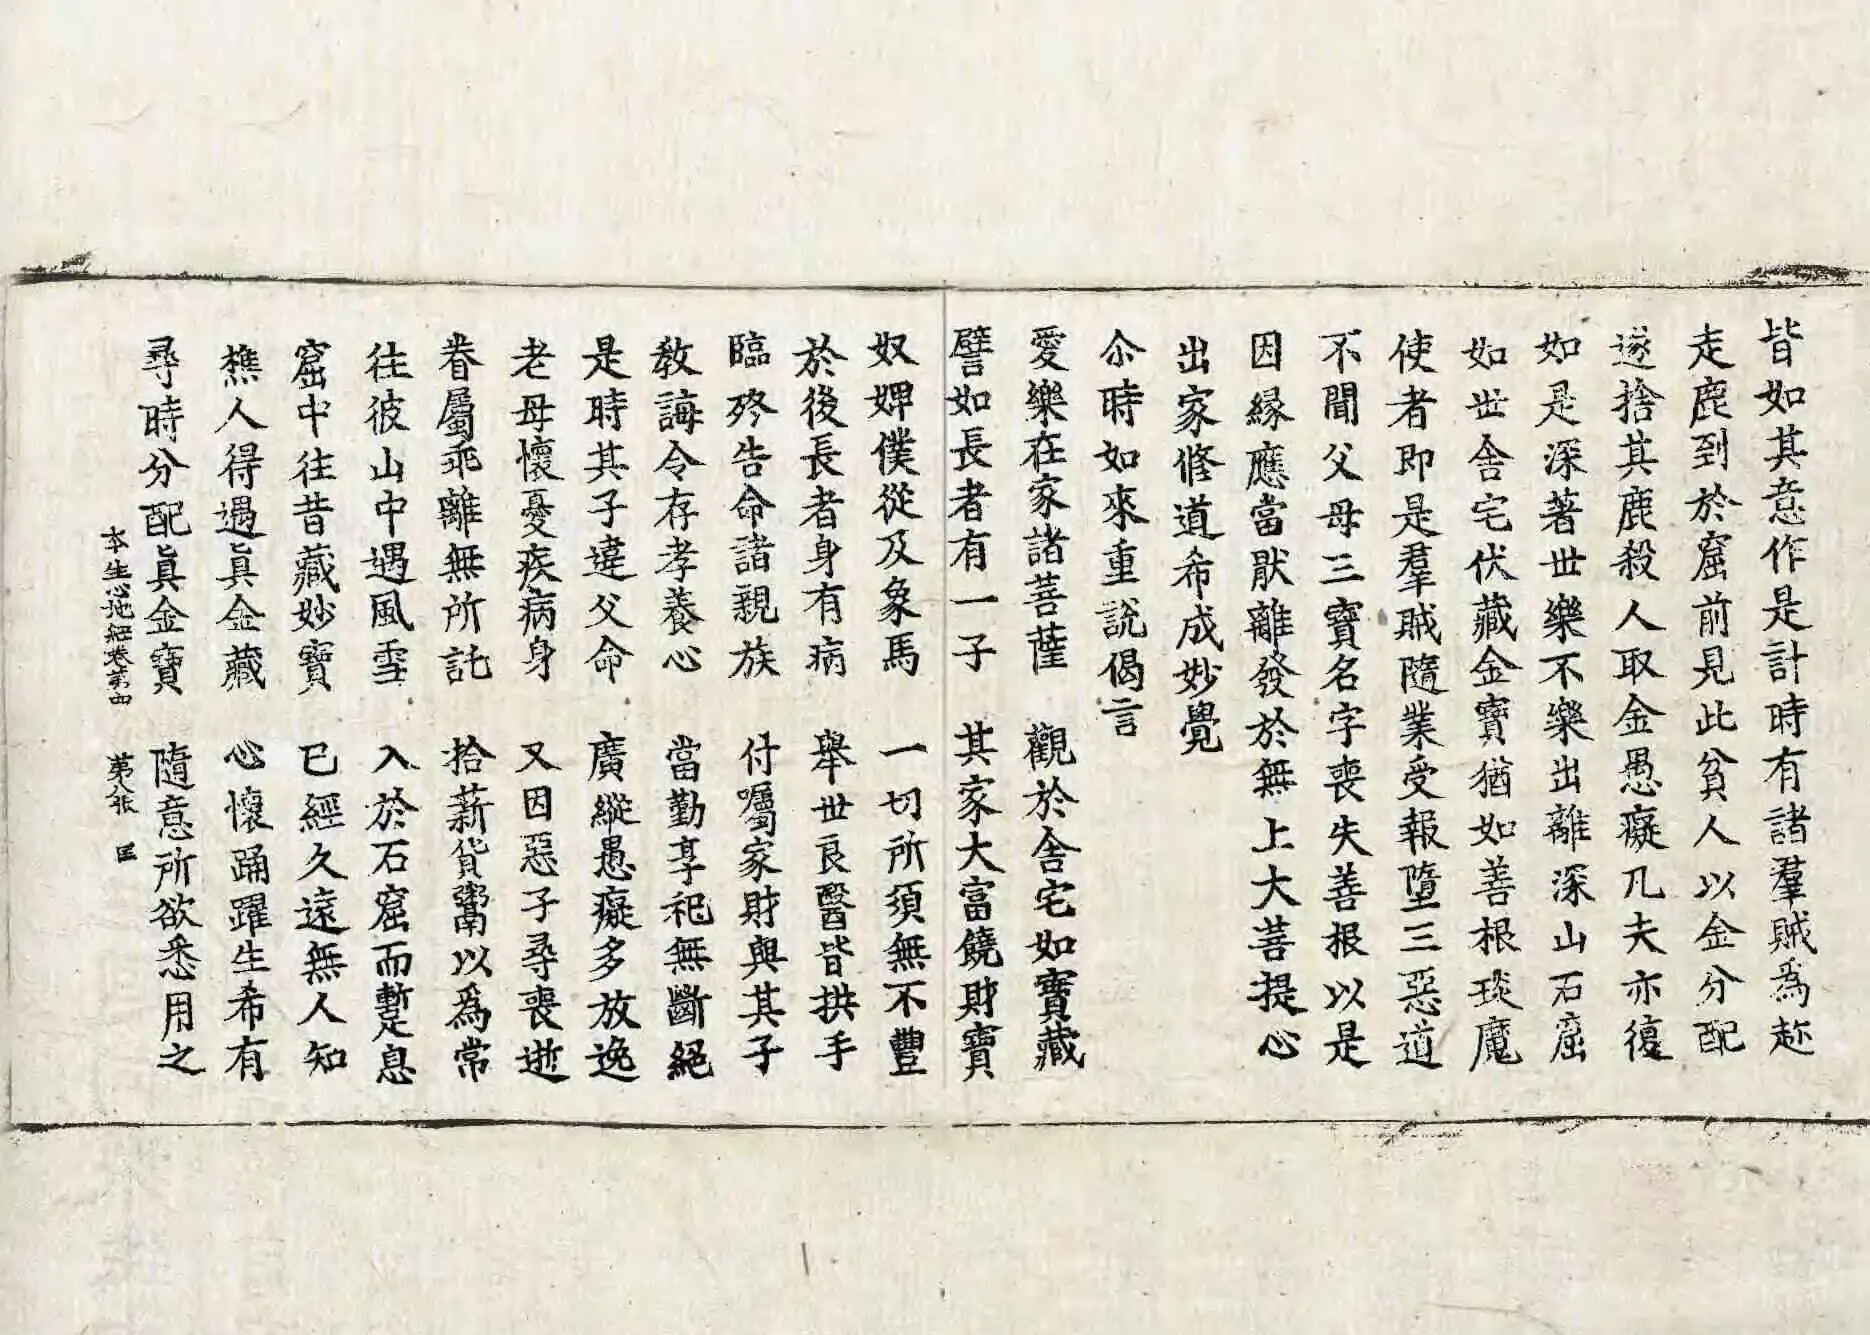 皆如其意作是計時有諸羣賊為趂
走鹿到於窟前見此貧人以金分配
遂捨其鹿殺人取金愚癡凡夫亦復
如是深著世樂不樂出離深山石窟
如世舍宅伏藏金寶猶如善根琰魔
使者即是羣賊隨業受報墮三惡道
不聞父母三寶名字喪失善根以是
因緣應當猒離發於無上大菩提心
出家修道希成妙覺
尒時如來重說偈言
愛樂在家諸菩薩 觀於舍宅如寶藏
譬如長者有一子 其家大富饒財寶
奴婢僕從及象馬 一切所須無不豐
於後長者身有病 舉世良醫皆拱手
臨終告命諸親族 付囑家財與其子
教誨令存孝養心 當勤享祀無斷絕
是時其子違父命 廣縱愚癡多放逸
老母懷憂疾病身 又因惡子尋喪逝
眷屬乖離無所託 拾薪貨鬻以為常
往彼山中遇風雪 入於石窟而暫息
窟中往昔藏妙寶 已經久遠無人知
樵人得遇眞金藏 心懷踊躍生希有
尋時分配眞金寶 隨意所欲悉用之
本生心地經卷第四 第八張 匡